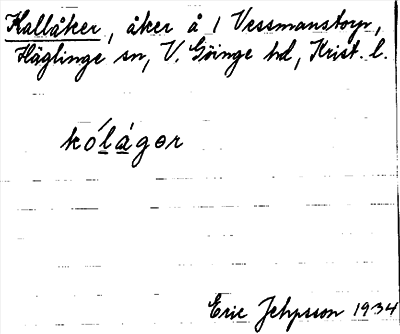 Kallåker, åker å 1 Vessmanstorp,
Häglinge sn, V. Göinge hd, Krist. l.
kólágər
Eric Jehpsson 1934